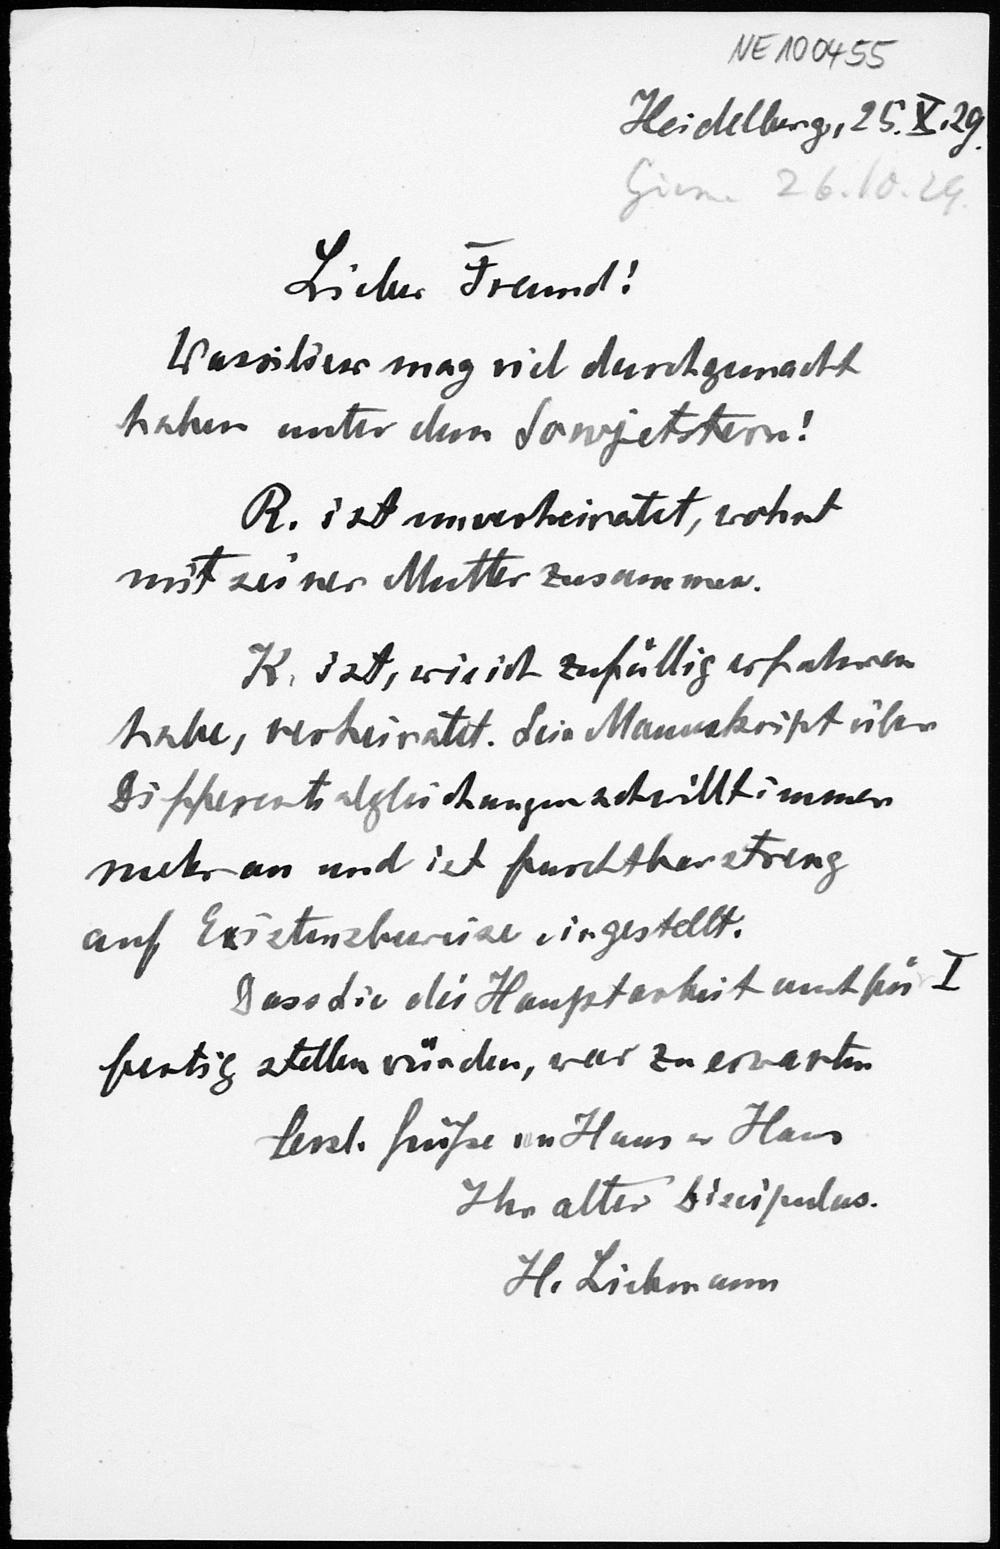 NE100455
Heidelberg, 25.X.29.
26.10.29.
Lieber Freund!
Wassiliew mag viel durchgemacht
haben unter dem Sowjetstern!
R. ist unverheiratet, wohnt
mit seiner Mutter zusammen.
K. ist, wie ich zufällig erfahren
habe, verheiratet. Sein Manuskript über
Differentialgleichungen schwillt immer
mehr an und ist furchtbar streng
auf Existenzbeweise eingestellt.
Dass Sie die Hauptarbeit auch für I
fertig stellen würden, war zu erwarten
Herzl. Grüße von Haus zu Haus
Ihr alter discipulus.
H. Liebmann